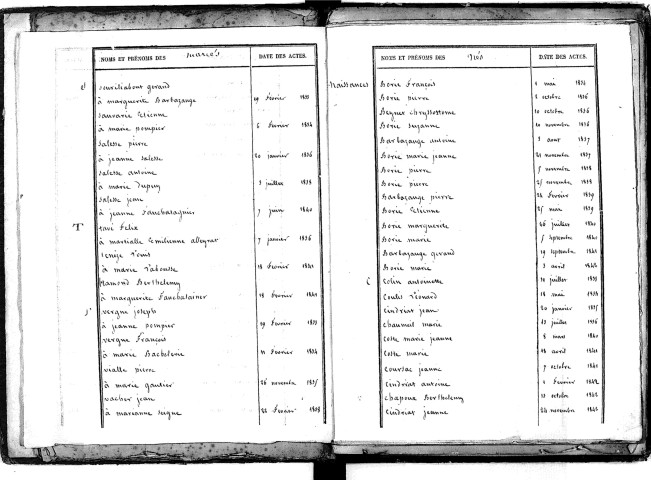 NOMS ET PRÉNOMS DES mariés DATE DES ACTES.
gerard
à marguerite Barbazange 19 février
sauvarie Etienne
à marie pompier 6 février 1834
salesse pierre
à jeanne salesse 20 janvier 1836
salesse antoine
à marie dupuy 3 juillet 1838
salesse jean
à jeanne 7 juin 1840
T tavé Felix
à martialle Emilienne 7 janvier 1836
à marie 18 février 1841
Ramond Berthelemy
à marguerite 18 février 1841
vergne joseph
à jeanne pompier 19 février
vergne François
à marie Bachelerie 11 février 1834
vialle pierre
à marie gautier 26 novembre 1835
vacher jean
à marianne 22 février 1838
NOMS ET PRÉNOMS DES Nés DATE DES ACTES.
Naissances Borie François 1 mai 1836
Borie pierre 2 octobre 1836
Beynet chryssostome 10 octobre 1836
Borie suzanne 10 novembre 1836
Barbazange antoine 3 aout 1837
Borie marie jeanne 21 novembre 1837
Borie pierre 5 novembre 1838
Borie pierre 25 novembre 1838
Barbazange pierre 28 février 1839
Borie Etienne 25 mai 1839
Borie marguerite 26 juillet 1840
Borie marie 5 septembre 1841
Barbazange gerard 19 septembre 1841
Borie marie 3 avril 1842
C Colin antoinette 10 juillet
Coulet Léonard 18 mai
Cindrat jean 20 janvier 1835
chaumeil marie 13 juillet 1836
Coste marie jeanne 8 mars 1840
Coste marie 18 avril 1841
Coursac jeanne 7 octobre 1841
Cindriat antoine 1 février 1842
chapoux Berthelemy 11 octobre 1842
Cindreat jeanne 24 novembre 1842